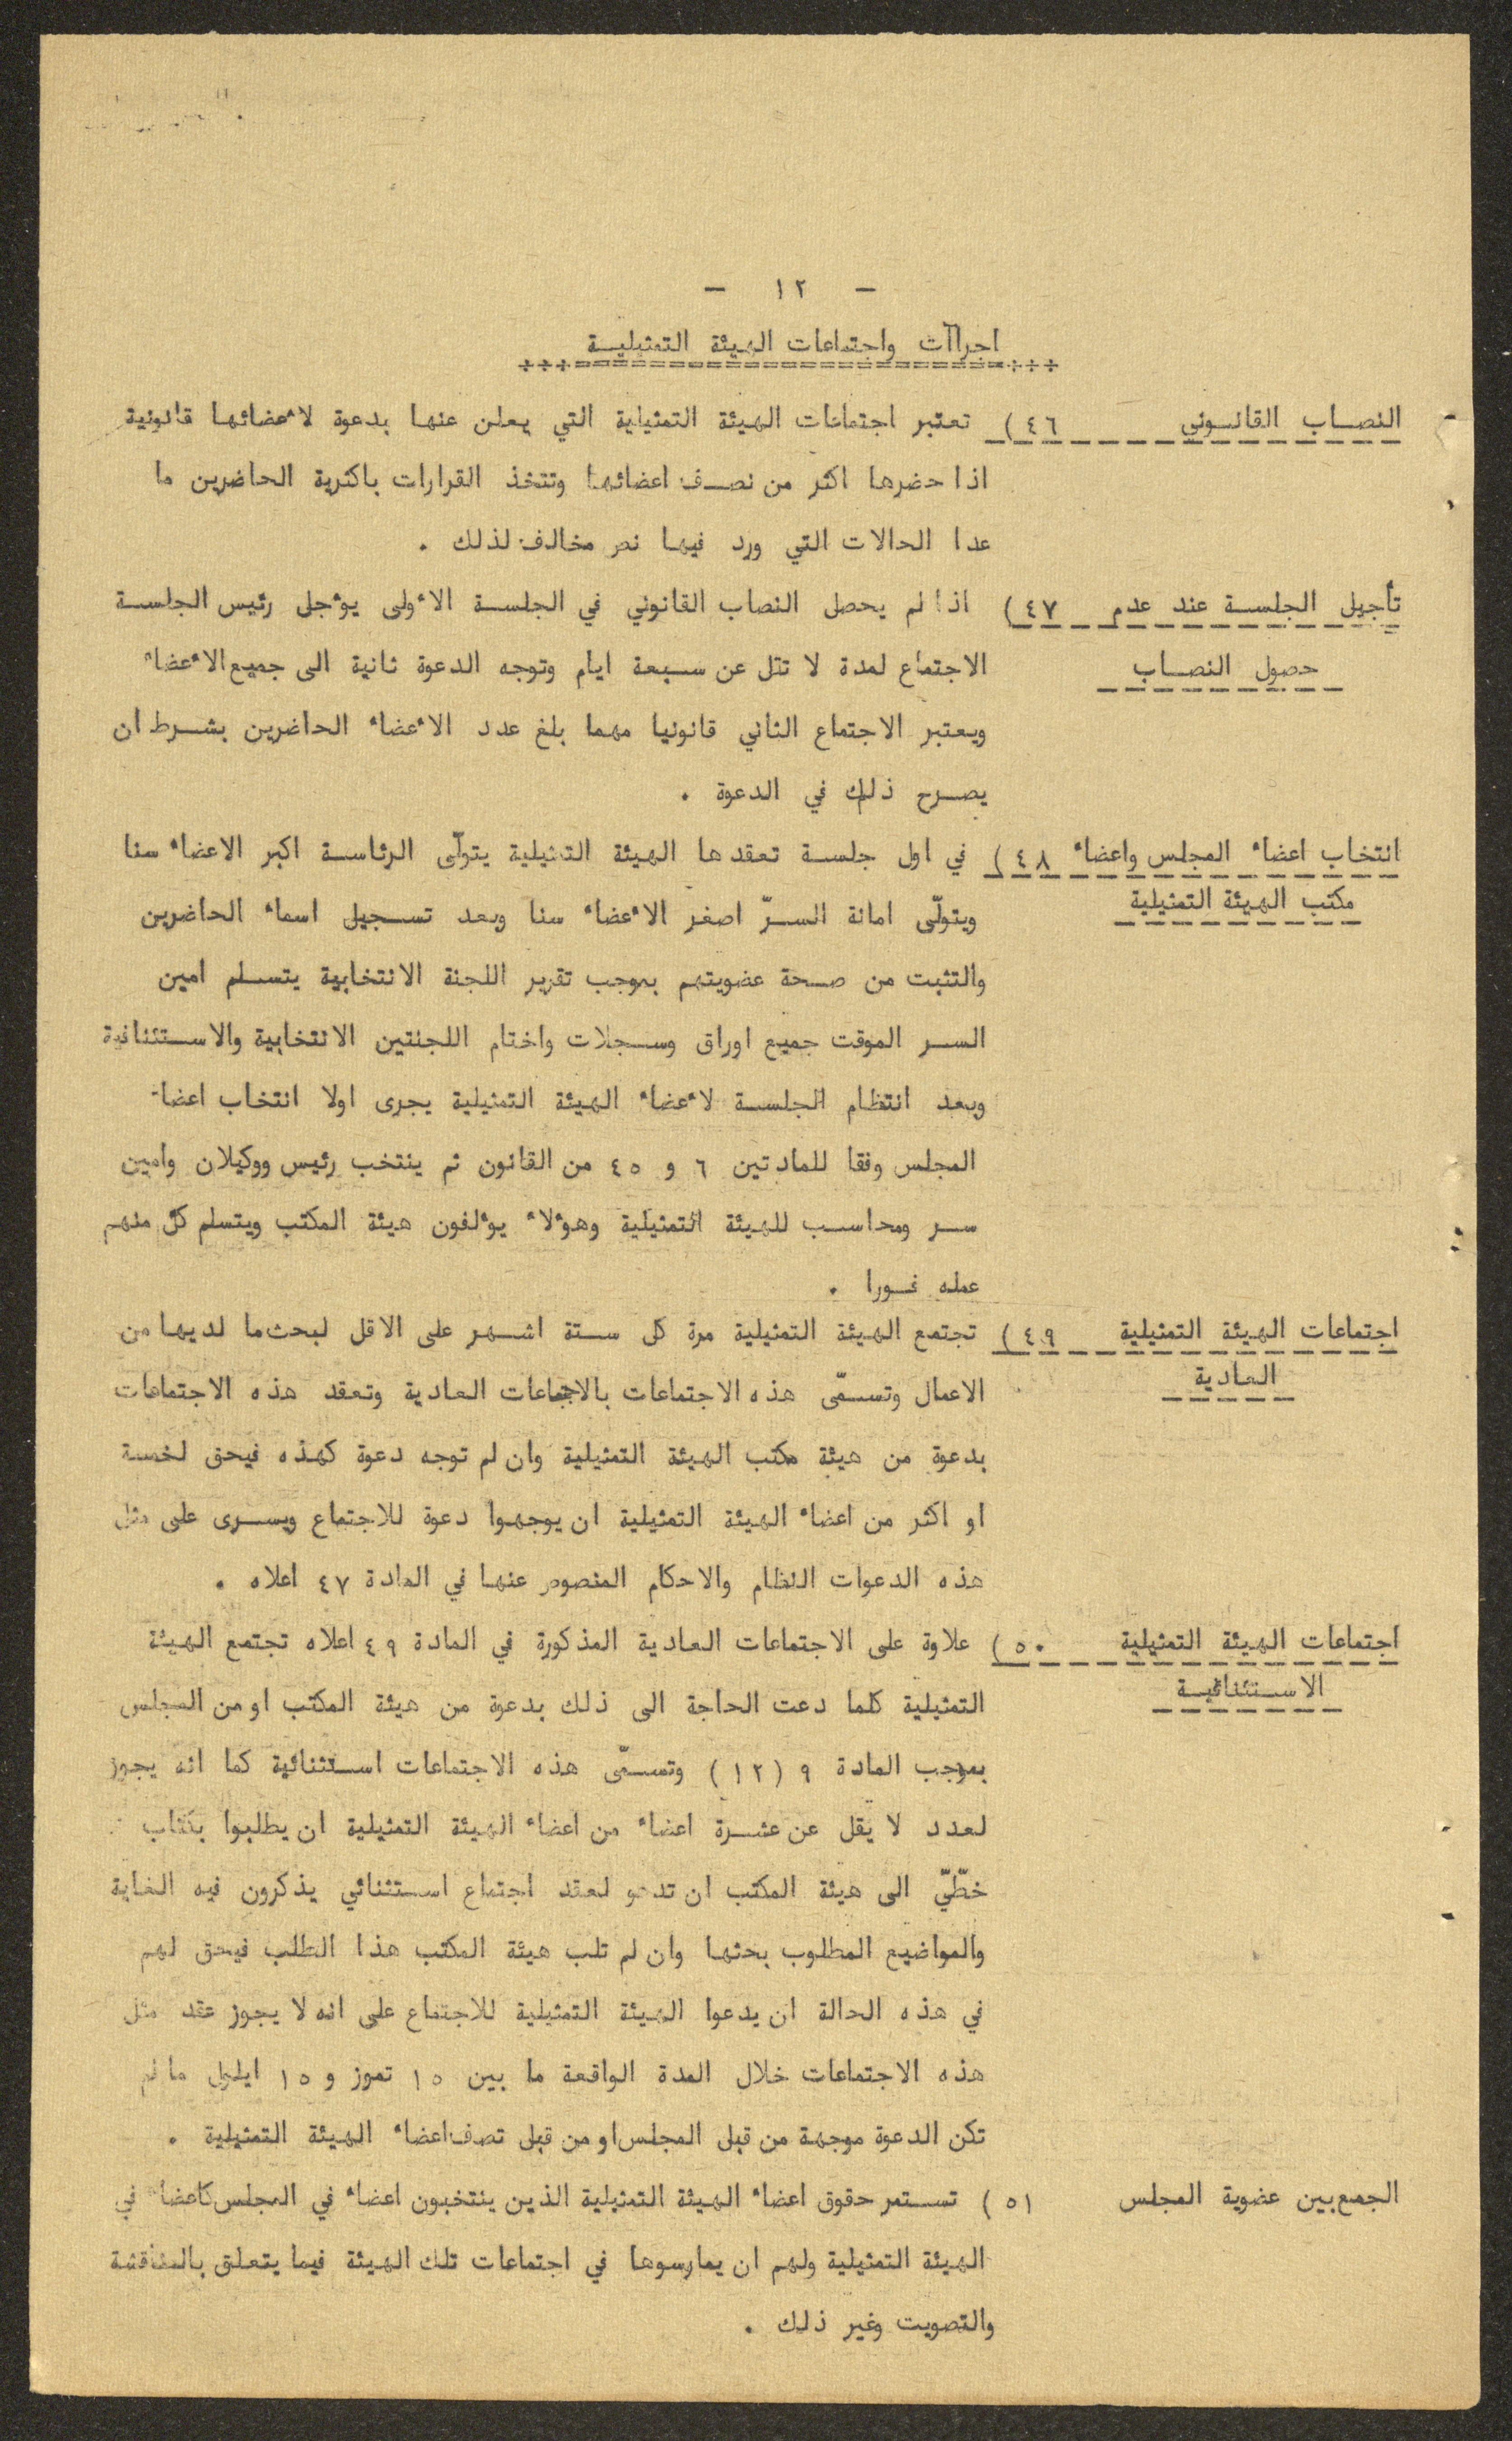 - ١٢ -
اجراآت واجتماعات الهيئة التمثيلية
النصاب القانوني ٤٦) تعتبر اجتماعات الهيئة التمثيلية التي يعلن عنها بدعوة لأعضائها قانونية
اذا حضرها اكثر من نصف اعضائها وتتخذ القرارات باكثرية الحاضرين ما
عدا الحالات التي ورد فيها نص مخالف لذلك .
تأجيل الجلسة عند عدم ٤٧) اذا لم يحصل النصاب القانوني في الجلسة الأولى يؤجل رئيس الجلسة
حصول النصاب الاجتماع لمدة لا تقل عن سبعة ايام وتوجه الدعوة ثانية الى جميع الأعضاء
ويعتبر الاجتماع الثاني قانونيا مهما بلغ عدد الأعضاء الحاضرين بشرط ان
يصرح ذلك في الدعوة .
انتخاب اعضاء المجلس واعضاء ٤٨) في اول جلسة تعقدها الهيئة التمثيلية يتولّى الرئاسة اكبر الاعضاء سنا
مكتب الهيئة التمثيلية ويتولّى امانة السرّ اصغر الأعضاء سنا وبعد تسجيل اسماء الحاضرين
والتثبت من صحة عضويتهم بموجب تقرير اللجنة الانتخابية يتسلم امين
السر الموقت جميع اوراق وسجلات واختام اللجنتين الانتخابية والاستئنافية
وبعد انتظام الجلسة لأعضاء الهيئة التمثيلية يجرى اولا انتخاب اعضاء
المجلس وفقا للمادتين ٦ و ٤٥ من القانون ثم ينتخب رئيس ووكيلان وامين
سر ومحاسب للهيئة التمثيلية وهؤلاء يؤلفون هيئة المكتب ويتسلم كل منهم
عمله فورا .
اجتماعات الهيئة التمثيلية ٤٩) تجتمع الهيئة التمثيلية مرة كل ستة اشهر على الاقل لبحث ما لديها من
العادية الاعمال وتسمّى هذه الاجتماعات بالاجتماعات العادية وتعقد هذه الاجتماعات
بدعوة من هيئة مكتب الهيئة التمثيلية وان لم توجه دعوة كهذه فيحق لخمسة
او اكثر من اعضاء الهيئة التمثيلية ان يوجهوا دعوة للاجتماع ويسرى على مثل
هذه الدعوات النظام والاحكام المنصوص عنها في المادة ٤٧ اعلاه .
اجتماعات الهيئة التمثيلية ٥٠) علاوة على الاجتماعات العادية المذكورة في المادة ٤٩ اعلاه تجتمع الهيئة
الاستثنائية التمثيلية كلما دعت الحاجة الى ذلك بدعوة من هيئة المكتب او من المجلس
بموجب المادة ٩ (١٢) وتسمّى هذه الاجتماعات استثنائية كما انه يجوز
لعدد لا يقل عن عشرة اعضاء من اعضاء الهيئة التمثيلية ان يطلبوا بكتاب
خطّيّ الى هيئة المكتب ان تدعو لعقد اجتماع استثنائي يذكرون فيه الغاية
والمواضيع المطلوب بحثها وان لم تلب هيئة المكتب هذا الطلب فيحق لهم
في هذه الحالة ان يدعوا الهيئة التمثيلية للاجتماع على انه لا يجوز عقد مثل
هذه الاجتماعات خلال المدة الواقعة ما بين ١٥ تموز و ١٥ ايلول ما لم
تكن الدعوة موجهة من قبل المجلس او من قبل نصف اعضاء الهيئة التمثيلية .
الجمع بين عضوية المجلس ٥١) تستمر حقوق اعضاء الهيئة التمثيلية الذين ينتخبون اعضاء في المجلس كاعضاء في
الهيئة التمثيلية ولهم ان يمارسوها في اجتماعات تلك الهيئة فيما يتعلق بالمناقشة
والتصويت وغير ذلك .